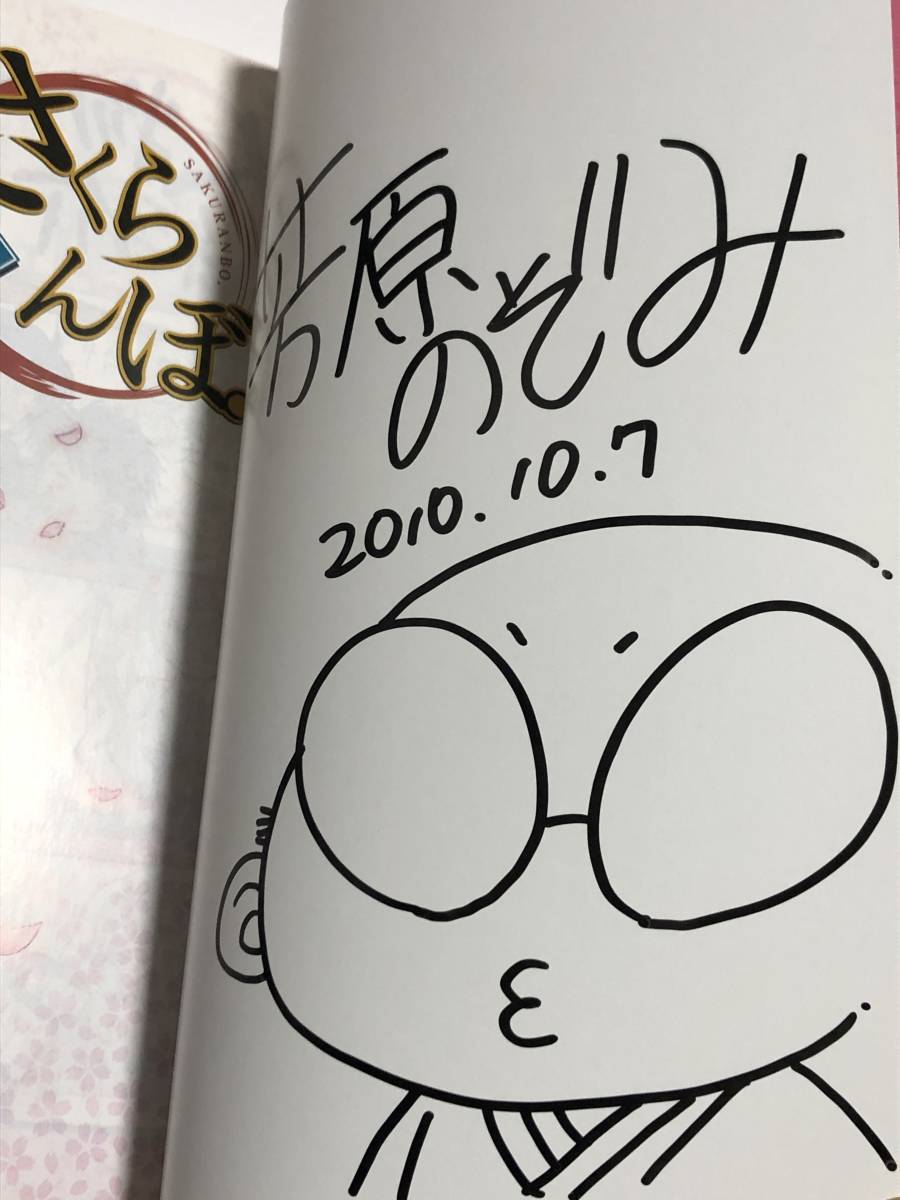 さくら
んぼ。
SAKURANBO.
芳原
のぞみ
2010.10.7